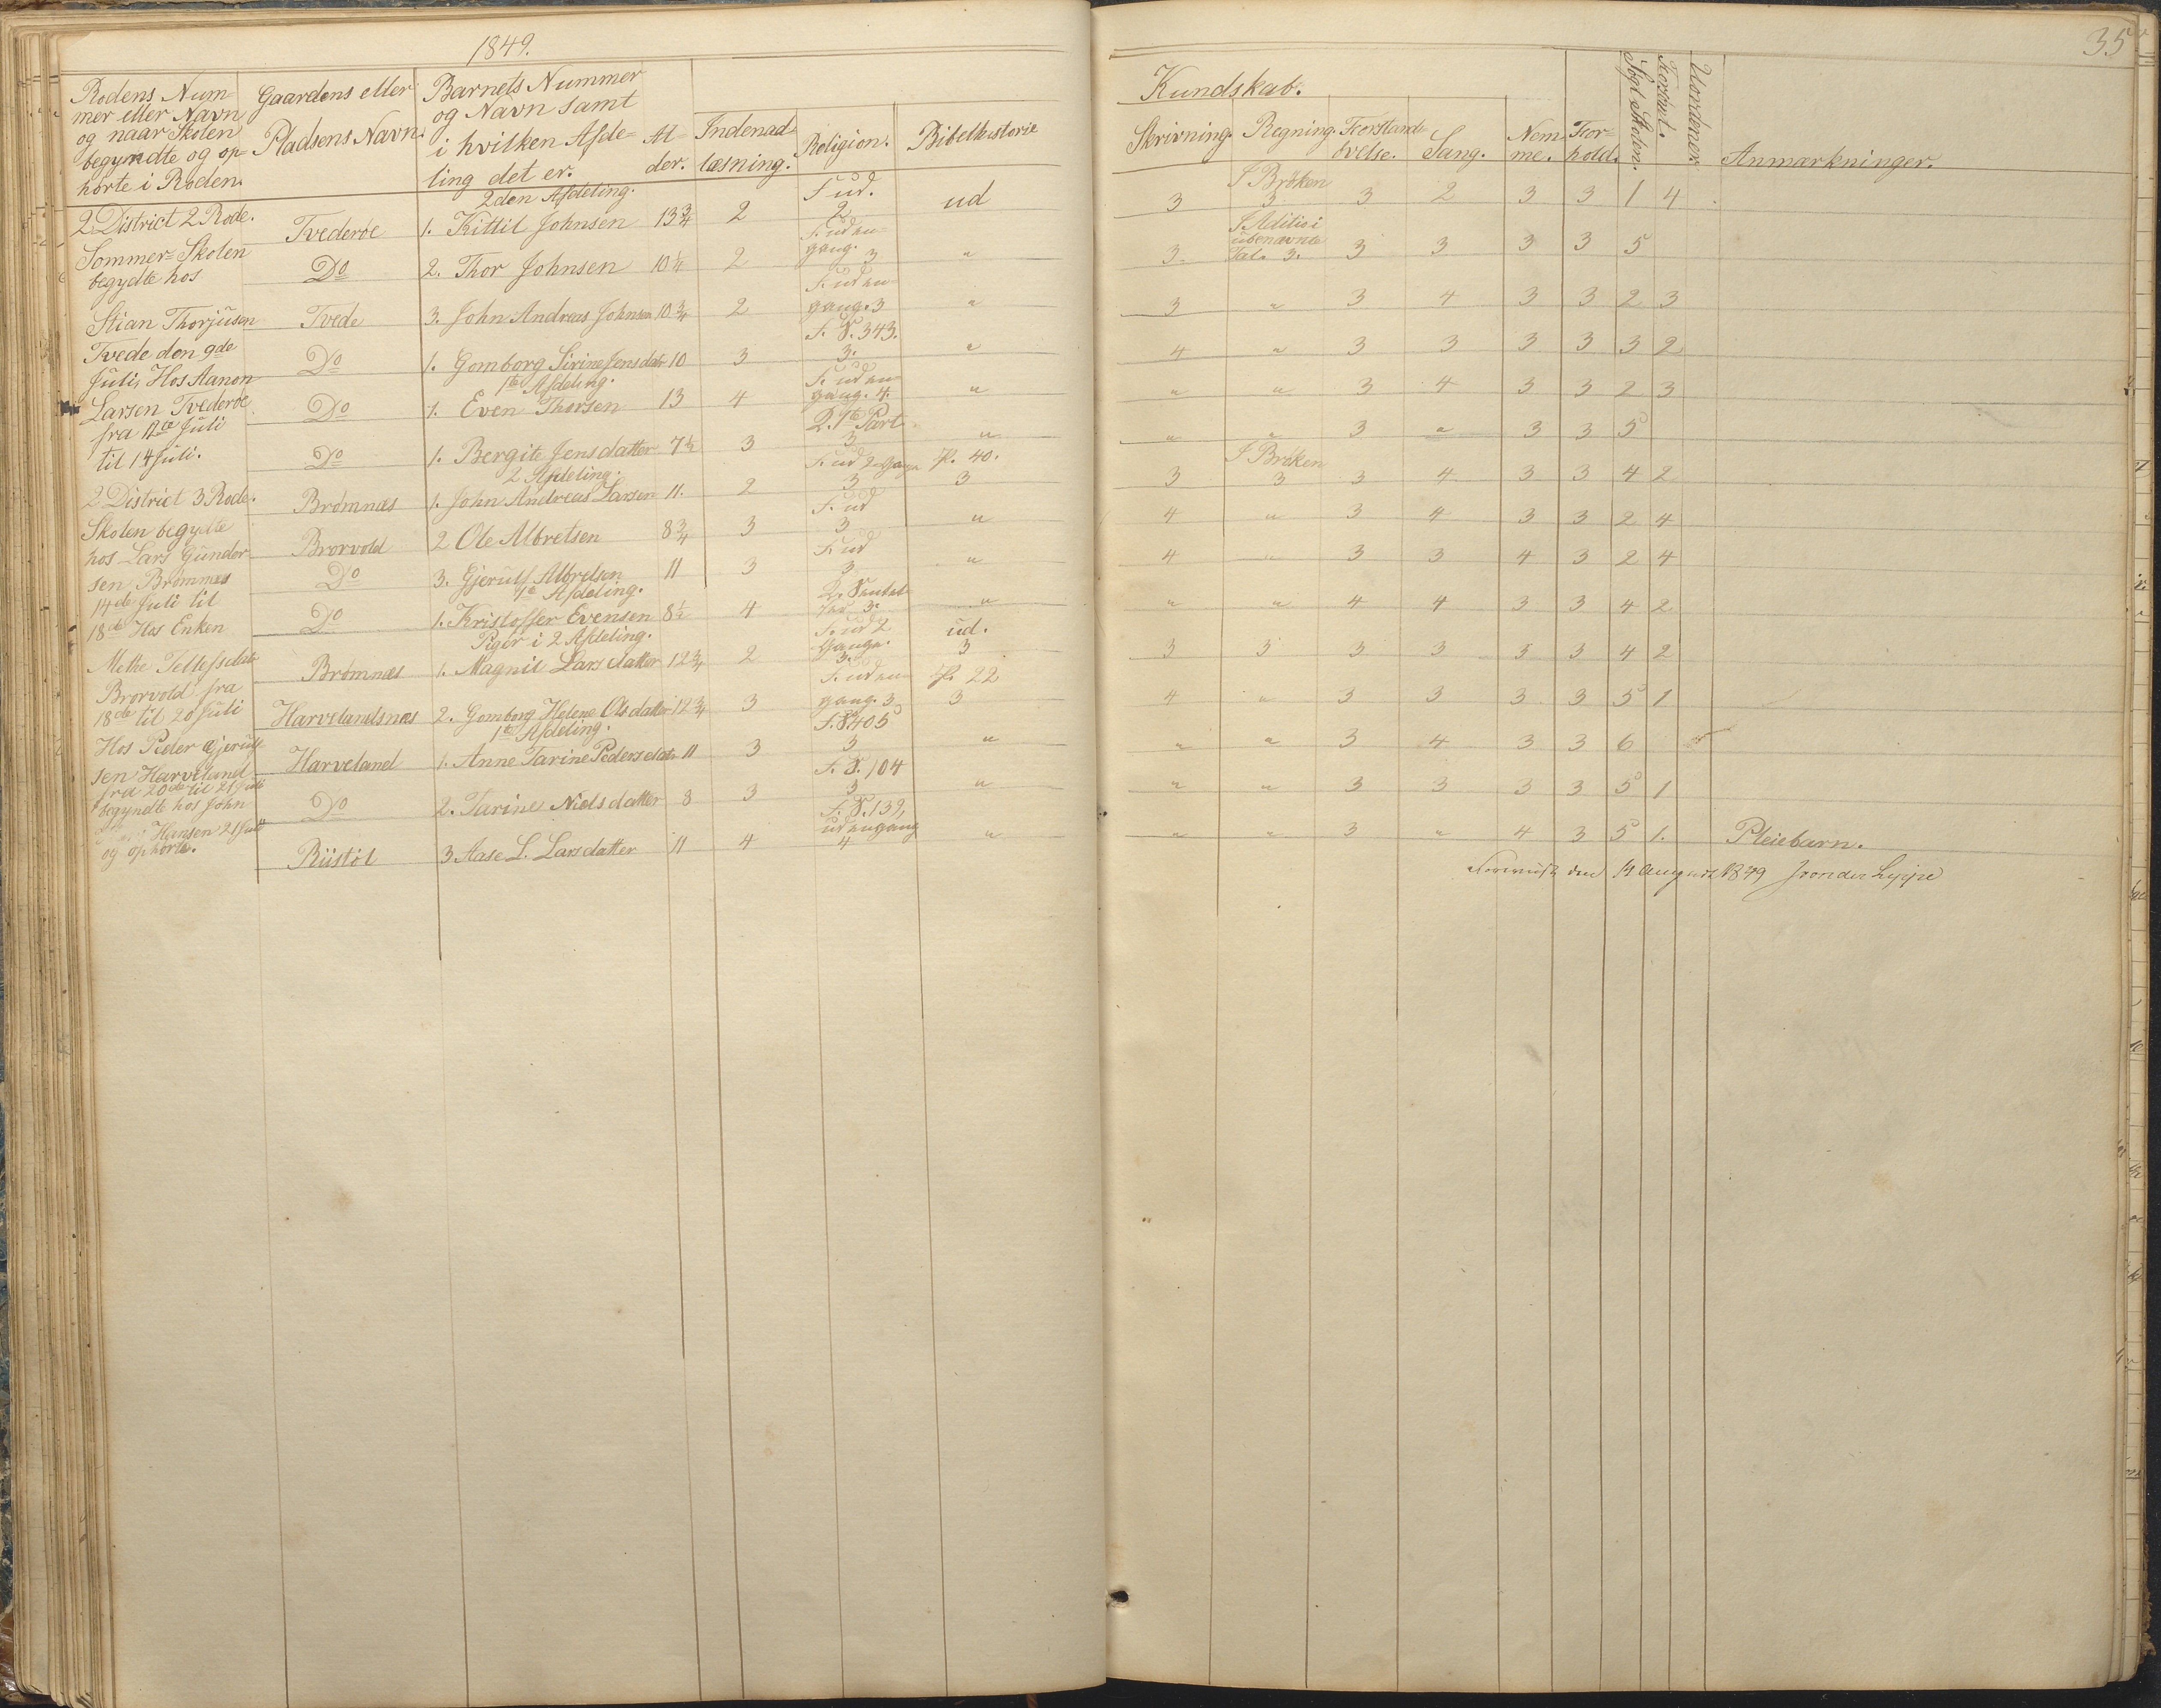 1849.
35
Rodens Num-
mer eller Navn
og naar Skolen
begyndte og op-
hørte i Roden.
Gaardens eller
Pladsens Navn.
Barnets Nummer
og Navn samt
i hvilken Afde-
ling det er.
Al-
der.
Indenad-
læsning.
Religion.
Bibelhistorie
Kundskab.
Skrivning.
Regning.
Forstands
övelse.
Sang.
Nem-
me.
For-
hold.
Søgt Skolen.
Forsømt.
Uordener.
Anmærkninger.
2 District 2 Rode.
Sommer-Skolen
begydte hos
Stian Thorjüsen
Tvede den 9de
Juli, Hos Aanon
Larsen Tvederöe
fra 12te Juli
til 14 Juli.
2 District 3 Rode.
Skolen begydte
hos Lars Gunder-
sen Brömnes
14de Juli til
18de Hos Enken
Methe Tellefsdatr
Brorvold fra
18de til 20 Juli
Hos Peder Gjerulf-
sen Harveland
fra 20de til 21 Juli
begyndte hos John
Hansen 21 Juli
og ophörte.
2den Afdeling.
Tvederöe 1. Kittil Johnsen 13 3/4 2 F. ud. 2 ud 3 I Bröken 3 3 2 3 3 1 4
Do 2. Thor Johnsen 10 1/4 2 F. ud en-gang. 3 " 3. I Aditio i übenævnte Tal. 3. 3 3 3 3 5
Tvede 3. John Andreas Johnsen 10 3/4 2 F. ud en-gang. 3 " 3 " 3 4 3 3 2 3
Do 1. Gomborg Sirine Jensdatr 10 3 F. S. 343. 3. " 4 " 3 3 3 3 3 2
1te Afdeling.
Do 1. Even Thorsen 13 4 F. ud en-gang. 4. " " " 3 4 3 3 2 3
Do 1. Bergite Jensdatter 7 1/2 3 2. 1te Part 3 " " " 3 " 3 3 5
2 Afdeling.
Brömnæs 1. John Andreas Larsen 11. 2 F. ud 2 Gange 3 P. 40. 3 3 I Bröken 3 3 4 3 3 4 2
Brorvold 2 Ole Albretsen 8 3/4 3 F. ud 3 " 4 " 3 4 3 3 2 4
Do 3. Gjerulf Albretsen 11 3 F. ud 3 " 4 " 3 3 4 3 2 4
1te Afdeling.
Do 1. Kristoffer Evensen 8 1/2 4 3. " " " 4 4 3 3 4 2
Piger i 2 Afdeling.
Brömnæs 1. Magnil Larsdatter 12 3/4 2 F. ud 2 Gange. 3. ud. 3 3 3 3 3 3 3 4 2
Harvelandsnæs 2. Gomborg Helene Olsdatter 12 3/4 3 F. ud en-gang. 3 P. 22 3 4 " 3 3 3 3 5 1
1te Afdeling.
Harveland 1. Anne Tarine Pedersdatr 11 3 F. S. 405 3 " " " 3 4 3 3 6
Do 2. Tarine Nielsdatter 8 3 F. S. 104 3 " " " 3 3 3 3 5 1
Riistöl 3. Aase L. Larsdatter 11 4 F. S. 139, ud engang 4 " " " 3 " 4 3 5 1. Pleiebarn.
den 14 August 1849 J von der Lippe